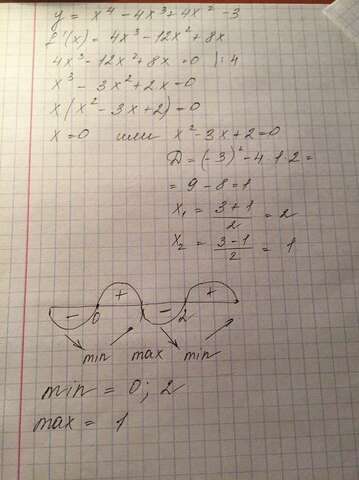 y = x⁴ - 4x³ + 4x² - 3
f'(x) = 4x³ - 12x² + 8x
4x³ - 12x² + 8x = 0 | : 4
x³ - 3x² + 2x = 0
x(x² - 3x + 2) = 0
x = 0 или x² - 3x + 2 = 0
D = (-3)² - 4·1·2 =
= 9 - 8 = 1
x₁ = (3+1)/2 = 2
x₂ = (3-1)/2 = 1
- 0 + 1 - 2 +
min max min
min = 0; 2
max = 1